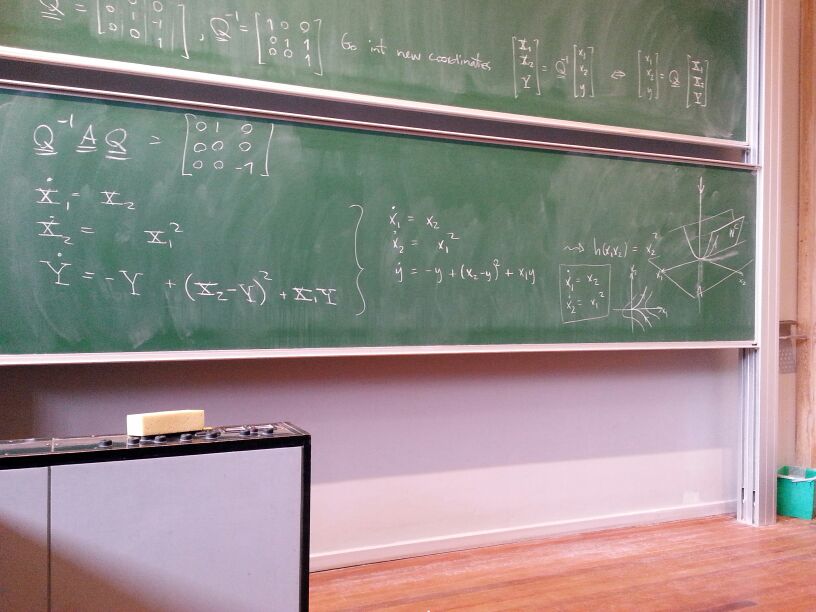 Q = [0 1 -1], Q⁻¹ = [1 0 0; 0 1 1; 0 0 1] Go int new coordinates [X₁; X₂; Y] = Q⁻¹ [x₁; x₂; y] ⇔ [x₁; x₂; y] = Q [X₁; X₂; Y]
Q⁻¹ A Q = [0 1 0; 0 0 0; 0 0 -1]
Ẋ₁ = X₂
Ẋ₂ = X₁²
Ẏ = -Y + (X₂-Y)² + X₁Y
ẋ₁ = x₂
ẋ₂ = x₁²
ẏ = -y + (x₂-y)² + x₁y
⇝ h(x₁x₂) = x₂²
ẋ₁ = x₂
ẋ₂ = x₁²
x₂
x₁
Wᶜ
x₁
x₂